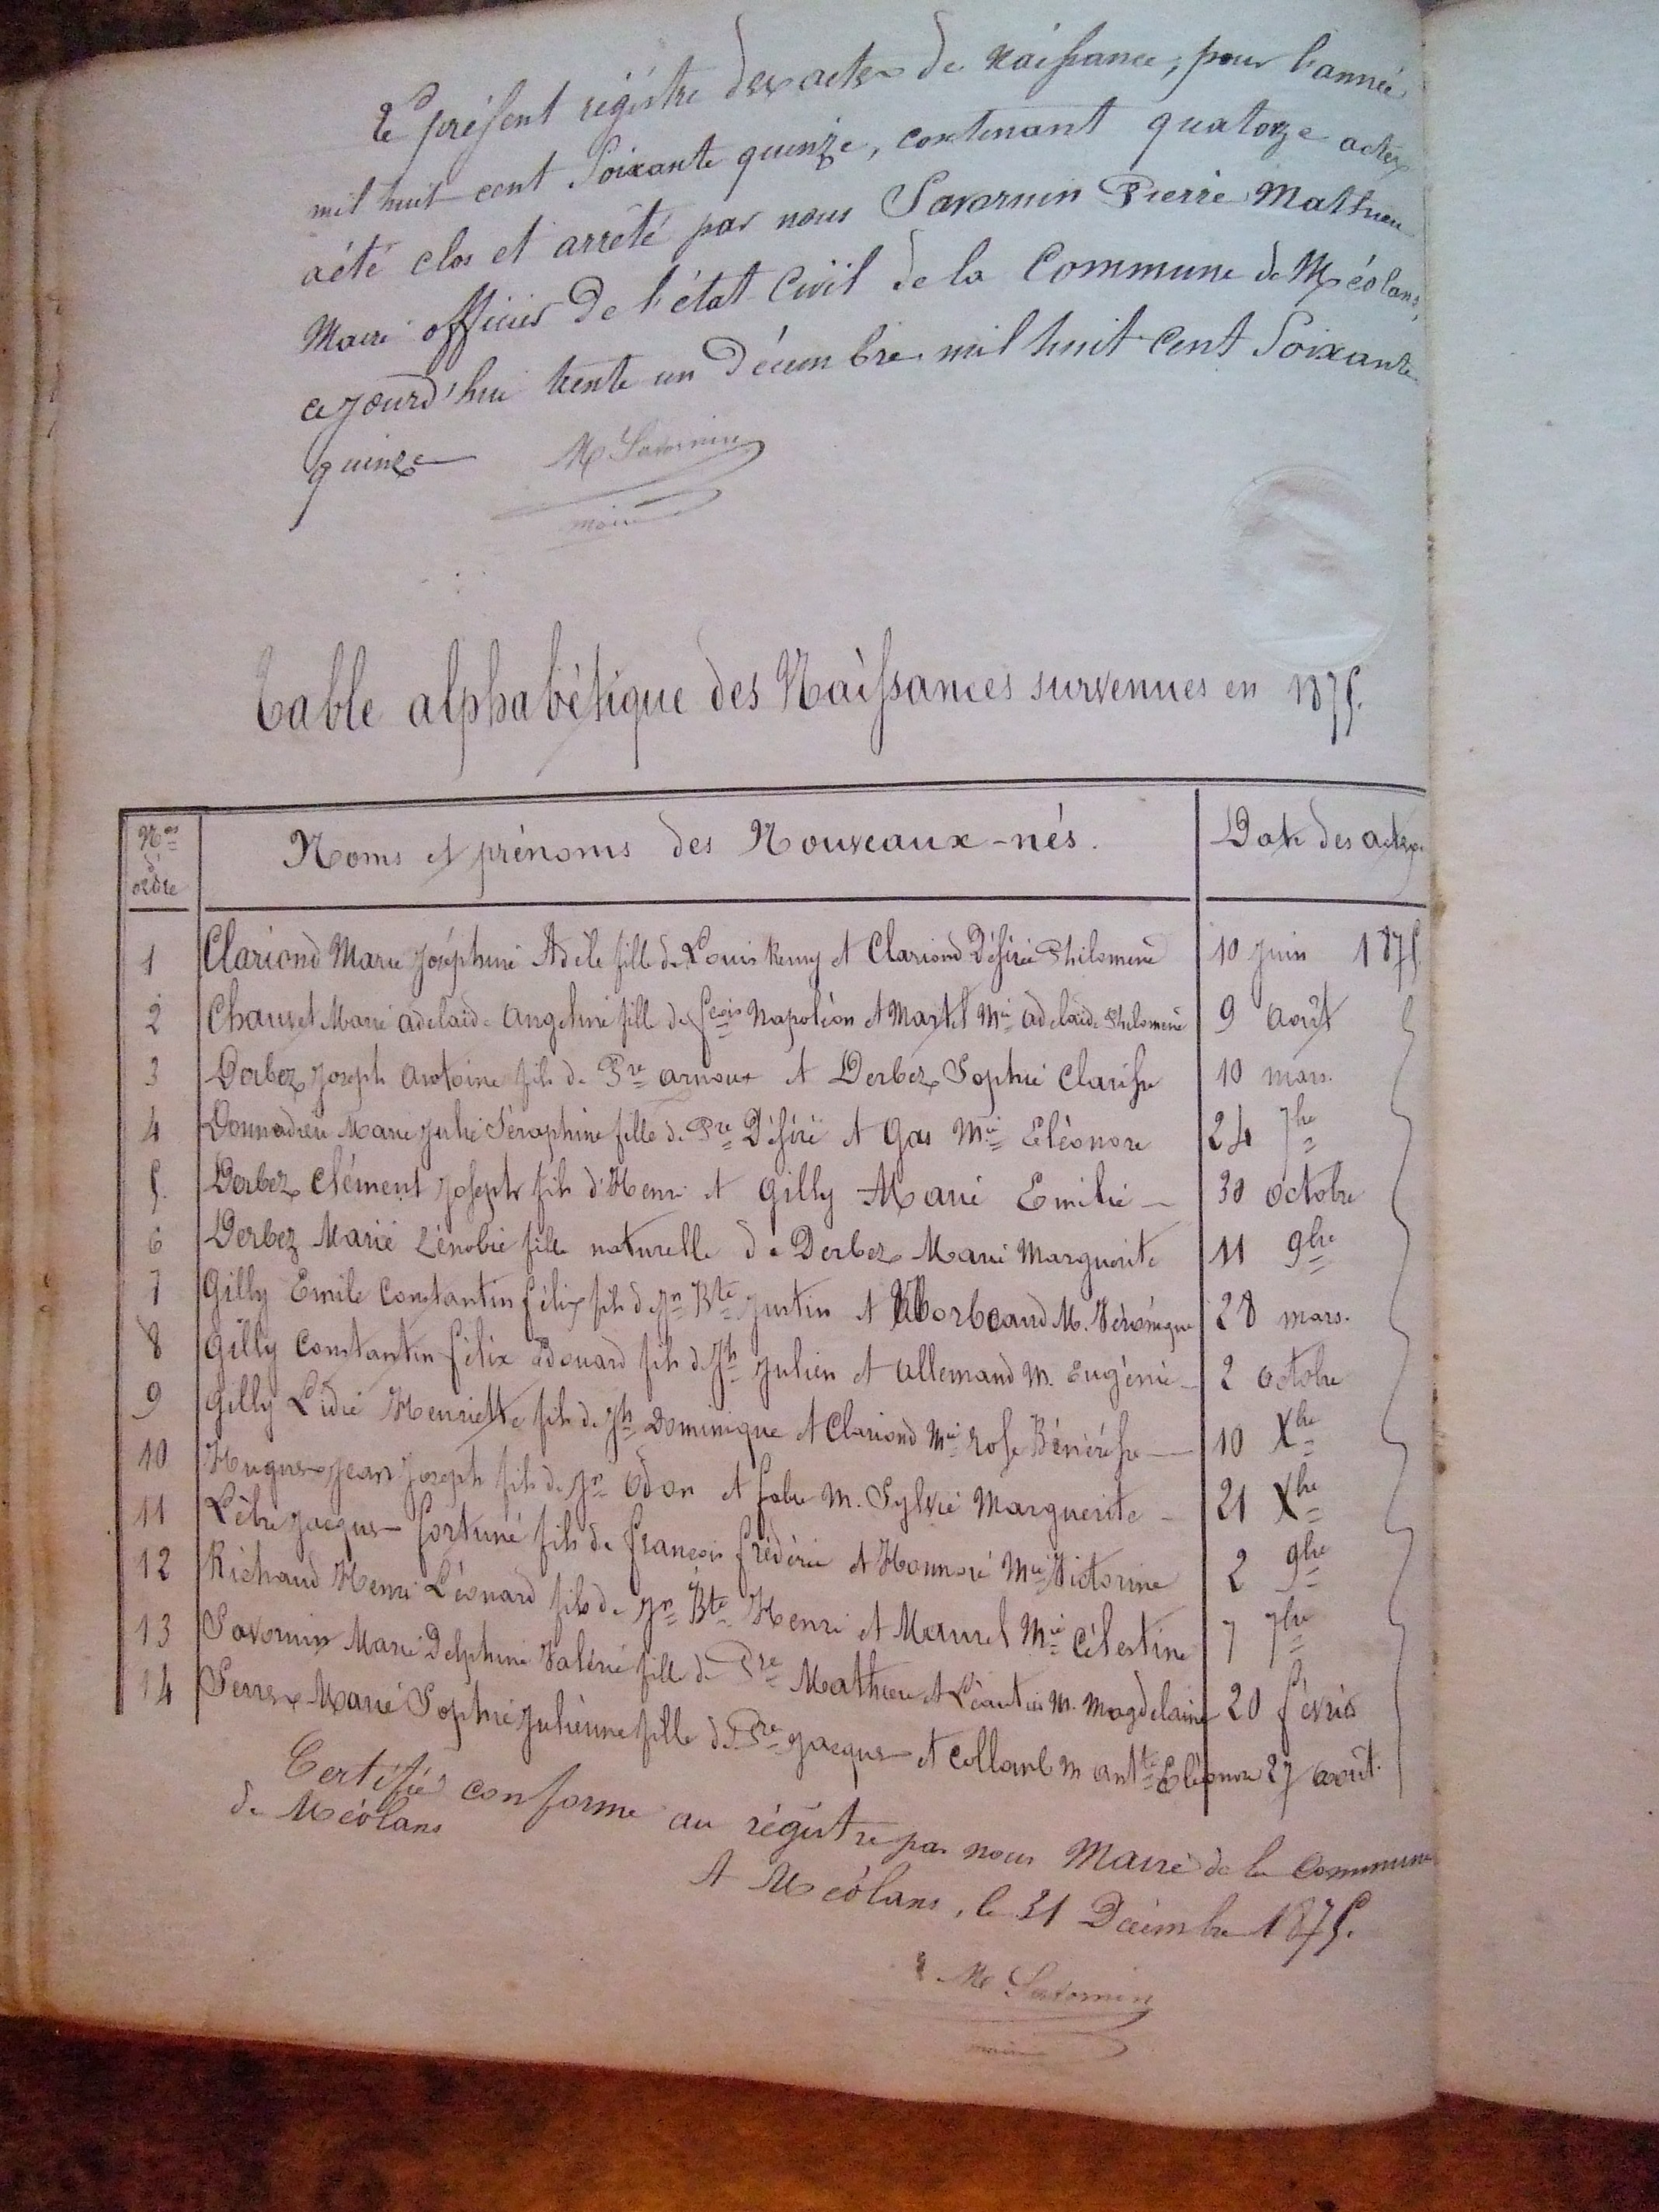 Le présent régistre des actes de Naissance, pour l'année
mil huit cent Soixante quinze, contenant quatorze actes
a été clos et arrêté par nous Savornin Pierre Mathieu
Maire officier De l'état Civil de la Commune de Méolans,
ce jourd'hui trente un Décembre mil huit cent Soixante
quinze
M Savornin
maire
Table alphabétique des Naissances survenues en 1875.
Nos d'ordre Noms et prénoms des Nouveaux-nés. Date des actes
1 Clariond Marie Joséphine Adèle fille de Louis Remy et Clariond Désirée Philomène 10 Juin 1875
2 Chauvet Marie adelaide Angeline fille de fcois Napoléon et Martel Mie adelaide Philomène 9 Août
3 Derbez Joseph Antoine fils de Pre arnoux et Derbez Sophie Clarisse 10 mars.
4 Donnadieu Marie Julie Séraphine fille de Pre Désiré et Gas Mie Eléonore 24 7bre
5. Derbez Clément Joseph fils d'Henri et Gilly Marie Emilie 30 octobre
6 Derbez Marie Zénobie fille naturelle de Derbez Marie Marguerite 11 9bre
7 Gilly Emile Constantin félix fils de Jn Bte Justin et M. Véronique 28 mars.
8 Gilly Constantin félix Edouard fils de Jh Julien et Allemand M. Eugénie 2 octobre
9 Gilly Lidie Henriette fils de Jh Dominique et Clariond Mie Rose 10 Xbre
10 Hugues Jean Joseph fils de Jn Odon et fabre M. Sylvie Marguerite 21 Xbre
11 Lèbre Jacques fortuné fils de françois frédéric et Honnoré Mie Victorine 2 9bre
12 Richaud Henri Léonard fils de Jn Bte Henri et Maurel Mie Célestine 7 7bre
13 Savornin Marie Delphine Valérie fille de Pre Mathieu et Léautier M. Magdelaine 20 février
14 Serres Marie Sophie Julienne fille de Pre Jacques et Collomb M antte Eléonore 27 août.
Certifié conforme au régistre par nous Maire de la Commune
de Méolans
A Méolans, le 31 Décembre 1875.
M Savornin
maire